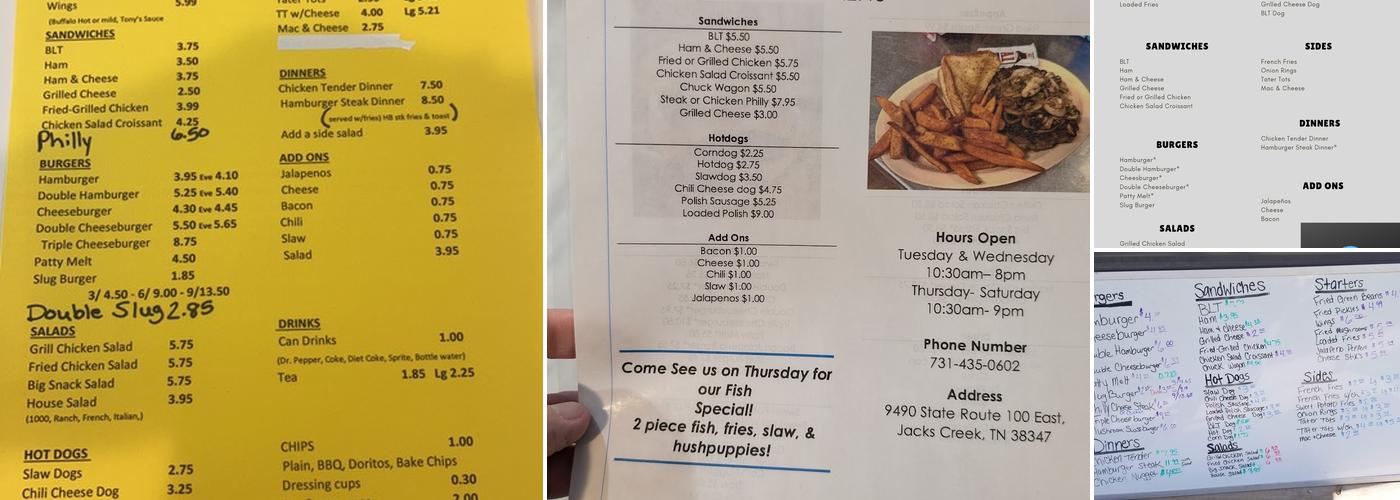 Wings 5.99
(Buffalo Hot or mild, Tony's Sauce
SANDWICHES
BLT 3.75
Ham 3.50
Ham & Cheese 3.75
Grilled Cheese 2.50
Fried-Grilled Chicken 3.99
Chicken Salad Croissant 4.25
Philly 6.50
BURGERS
Hamburger 3.95 Eve 4.10
Double Hamburger 5.25 Eve 5.40
Cheeseburger 4.30 Eve 4.45
Double Cheeseburger 5.50 Eve 5.65
Triple Cheeseburger 8.75
Patty Melt 4.50
Slug Burger 1.85
3/ 4.50 - 6/ 9.00 - 9/13.50
Double Slug 2.85
SALADS
Grill Chicken Salad 5.75
Fried Chicken Salad 5.75
Big Snack Salad 5.75
House Salad 3.95
(1000, Ranch, French, Italian,)
HOT DOGS
Slaw Dogs 2.75
Chili Cheese Dog 3.25
TT w/Cheese 4.00 Lg 5.21
Mac & Cheese 2.75
DINNERS
Chicken Tender Dinner 7.50
Hamburger Steak Dinner 8.50
(served w/fries) HB stk fries & toast)
Add a side salad 3.95
ADD ONS
Jalapenos 0.75
Cheese 0.75
Bacon 0.75
Chili 0.75
Slaw 0.75
Salad 3.95
DRINKS
Can Drinks 1.00
(Dr. Pepper, Coke, Diet Coke, Sprite, Bottle water)
Tea 1.85 Lg 2.25
CHIPS 1.00
Plain, BBQ, Doritos, Bake Chips
Dressing cups 0.30
2.00
Sandwiches
BLT $5.50
Ham & Cheese $5.50
Fried or Grilled Chicken $5.75
Chicken Salad Croissant $5.50
Chuck Wagon $5.50
Steak or Chicken Philly $7.95
Grilled Cheese $3.00
Hotdogs
Corndog $2.25
Hotdog $2.75
Slawdog $3.50
Chili Cheese dog $4.75
Polish Sausage $5.25
Loaded Polish $9.00
Add Ons
Bacon $1.00
Cheese $1.00
Chili $1.00
Slaw $1.00
Jalapenos $1.00
Come See us on Thursday for
our Fish
Special!
2 piece fish, fries, slaw, &
hushpuppies!
Hours Open
Tuesday & Wednesday
10:30am– 8pm
Thursday- Saturday
10:30am- 9pm
Phone Number
731-435-0602
Address
9490 State Route 100 East,
Jacks Creek, TN 38347
Loaded Fries
SANDWICHES
BLT
Ham
Ham & Cheese
Grilled Cheese
Fried or Grilled Chicken
Chicken Salad Croissant
BURGERS
Hamburger*
Double Hamburger*
Cheesburger*
Double Cheeseburger*
Patty Melt*
Slug Burger
SALADS
Grilled Chicken Salad
Grilled Cheese Dog
BLT Dog
SIDES
French Fries
Onion Rings
Tater Tots
Mac & Cheese
DINNERS
Chicken Tender Dinner
Hamburger Steak Dinner*
ADD ONS
Jalapeños
Cheese
Bacon
Dinners
Chicken Tender
Hamburger Steak
Chicken Nugget
Sandwiches
BLT
Ham
Ham & Cheese
Grilled Cheese
Fried-Grilled Chicken
Chicken Salad Croissant
Chuck Wagon
Hot Dogs
Slaw Dog
Chili Cheese Dog
Polish Sausage
Loaded Polish Sausage
Grilled Cheese Dog
BLT Dog
Hot Dog
Corn Dog
Salads
Grilled Chicken Salad
Fried Chicken Salad
Big Snack Salad
House Salad
Starters
Fried Green Beans
Fried Pickles
Wings
Fried Mushrooms
Loaded Fries
Cheese Stix
Sides
French Fries
Sweet Potato Fries
Onion Rings
Tater Tots
Mac & Cheese